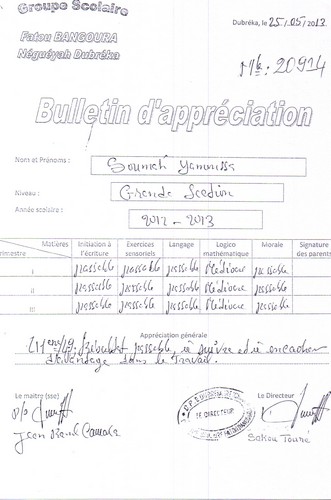 Groupe Scolaire
Dubréka, le 25/05/2013
Fatou BANGOURA
Néguéyah Dubréka
Mle: 20914
Bulletin d'appréciation
Nom et Prénoms : Soumah
Niveau : Grande Section
Année scolaire : 2012 - 2013
Matières Initiation à l'écriture Exercices sensoriels Langage Logico mathématique Morale Signature des parents
trimestre
I passable passable passable Médiocre passable
II passable passable passable Médiocre passable
III passable passable passable Médiocre passable
Appréciation générale
Résultat passable, à suivre et à encadrer
davantage dans le travail.
Le maitre (sse) Le Directeur
P/o
LE DIRECTEUR
Jean Camara
Sekou Touré